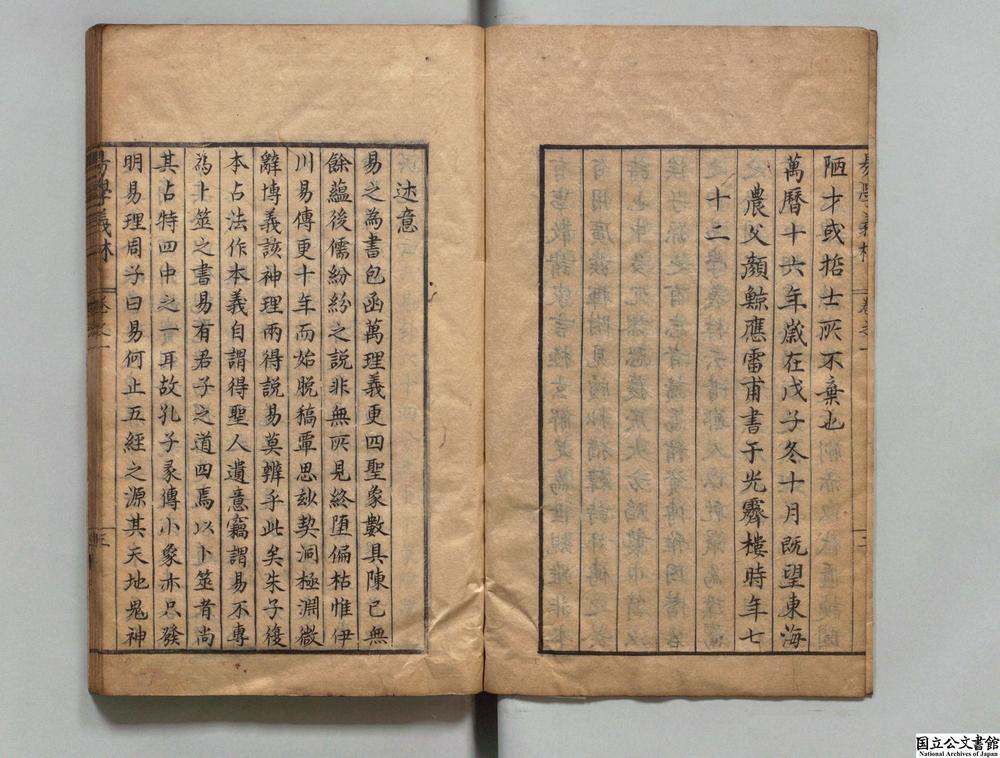 陋才或哲士所不棄也
萬曆十六年歲在戊子冬十月既望東海
農父顏鯨應雷甫書于光霽樓時年七
十二
述意
易之為書包函萬理義更四聖象數具陳已無
餘蘊後儒紛紛之説非無所見終堕偏枯惟伊
川易傳更十年而始脫稿覃思玅契洞極淵微
辭博義該神理兩得説易莫辨乎此矣朱子復
本占法作本義自謂得聖人遺意竊謂易不專
為卜筮之書易有君子之道四焉以卜筮者尚
其占特四中之一耳故孔子彖傳小象亦只發
明易理周子曰易何止五經之源其天地鬼神
易學義林
卷之一
国立公文書館
National Archives of Japan